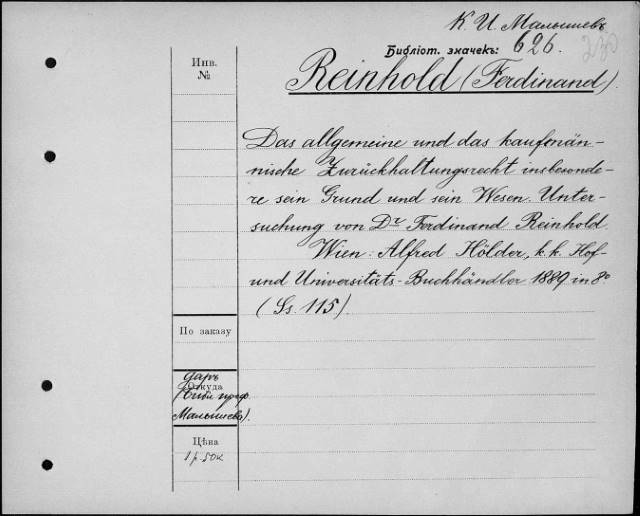 К. И. Малышевъ
Библіот. значекъ: 626.
230
Инв.
№
Reinhold (Ferdinand).
Das allgemeine und das kaufmän-
nische Zurückhaltungsrecht insbesonde-
re sein Grund und sein Wesen. Unter-
suchung von Dr Ferdinand Reinhold.
Wien: Alfred Hölder, k. k. Hof-
und Universitäts-Buchhändler 1889 in 8°
(Ss. 115).
По заказу
даръ
Откуда
(библ. проф.
Малышева).
Цѣна
1 р. 50 к